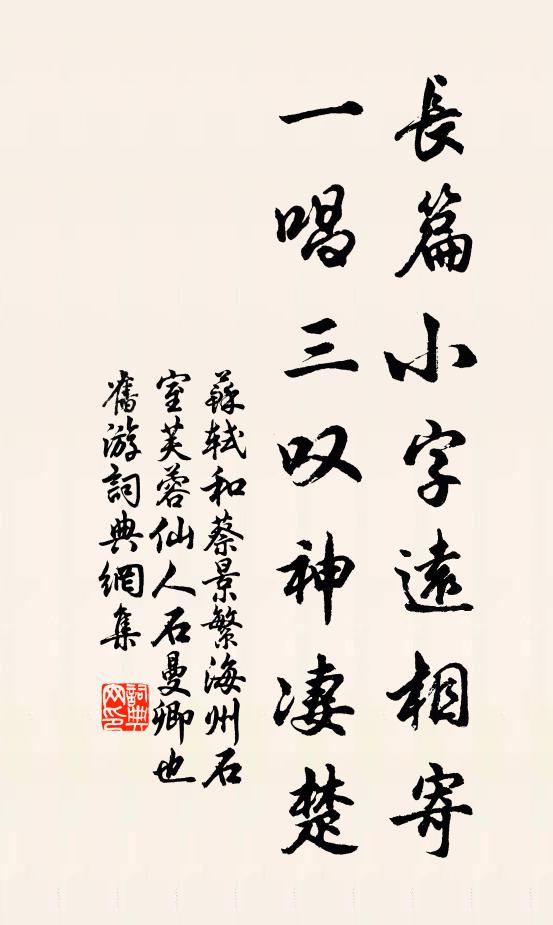 長篇小字遠相寄
一唱三叹神凄楚
蘇軾和蔡景繁海州石
室芙蓉仙人石曼卿也
舊游詞典網集
詞典
网印